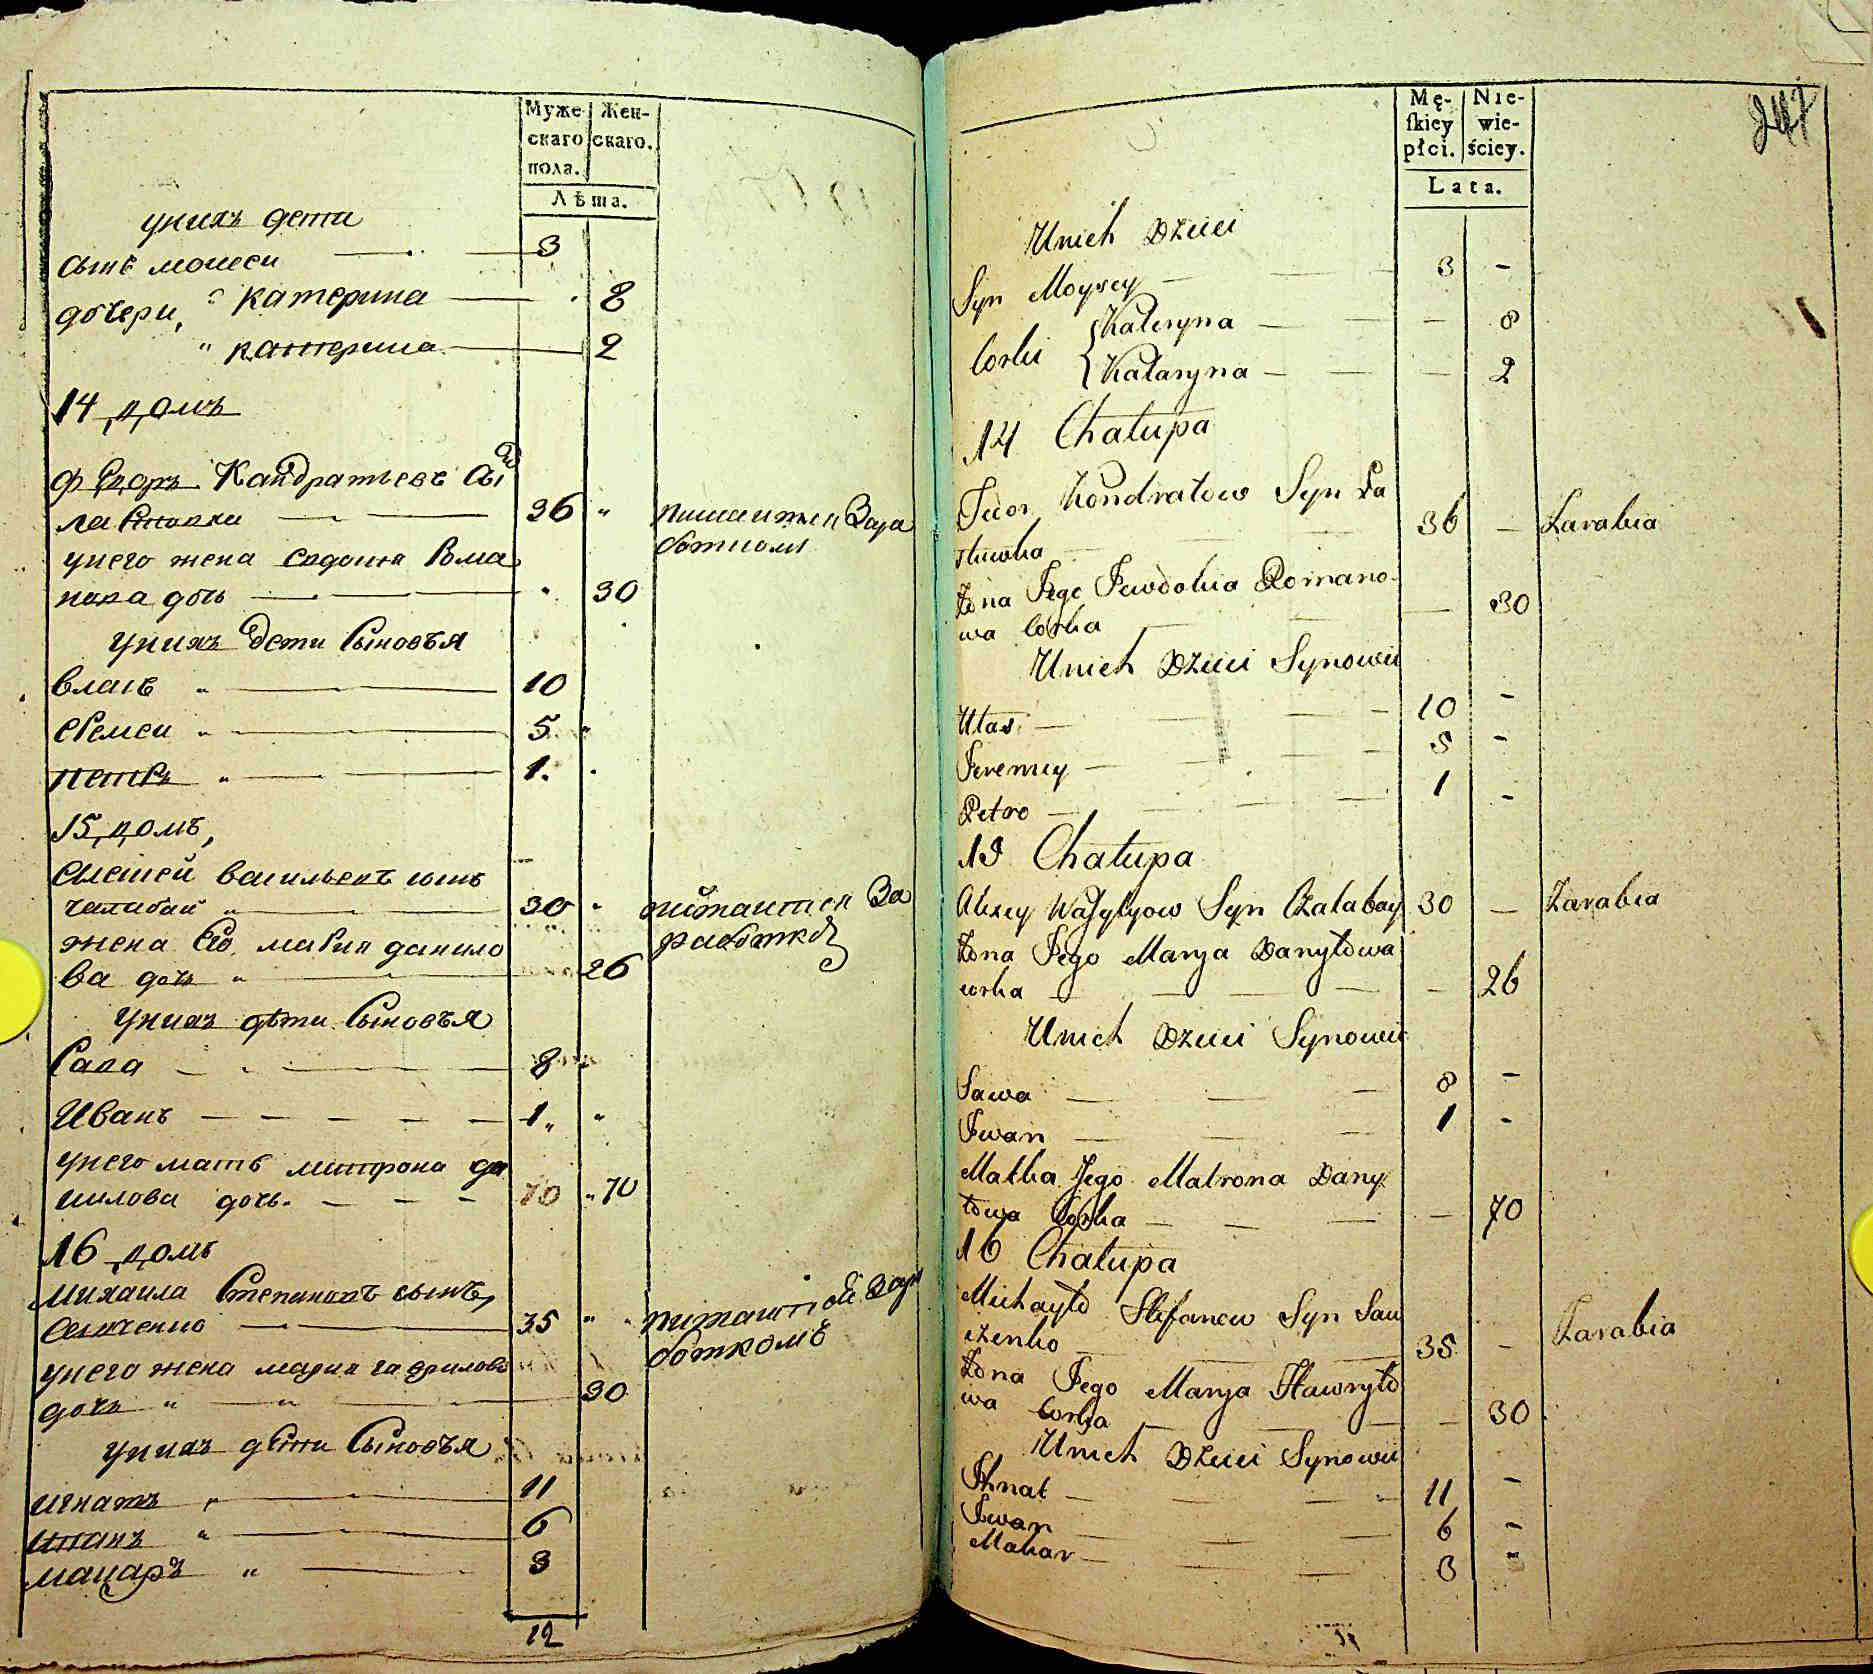 Муже-
скаго
пола.
Жен-
скаго.
Лѣта.
унихъ дети
сынъ моисеи 3
дочери, катерина 8
катерина 2
14 домъ
федоръ Кандратьевъ Сынъ
36 питаится Зара
боткомъ
унего жена Рома
нова дочь 30
унихъ дети Сыновъя
власъ 10
еремеи 5
петръ 1.
15, домъ,
алексей васильевъ сынъ
чалабай 30 питаится За
работкой
жена Его мария данило
ва дочь 26
унихъ дети Сыновъя
Сава 8
Иванъ 1
унего мать митрона да
нилова дочь 70 70
16 домъ
михаила Степановъ сынъ,
Савченко 35 питаится Зара
боткомъ
унего жена мария гаврилова
дочь 30
унихъ дети Сыновъя
игнатъ 11
иванъ 6
макаръ 3
12
Mę-
ſkiey
płci.
Nie-
wie-
ściey.
Lata.
247
Unich Dzieci
Syn Moysey 3 -
Corki Kateryna - 8
Kataryna - 2
14 Chałupa
Fedor Kondratow Syn Ła
36 - Zarabia
Żona Jego Jewdokia Romano-
wa Corka - 30
Unich Dzieci Synowie
Ułas 10 -
Jeremiy 5 -
Petro 1 -
15 Chałupa
Alexey Wasylyow Syn Czałabay 30 - Zarabia
Żona Jego Marya Danyłowa
corka - 26
Unich Dzieci Synowie
Sawa 8 -
Iwan 1 -
Matka Jego Matrona Dany
łowa Corka - 70
16 Chałupa
Michayło Stefanow Syn Saw
czenko 35 - Zarabia
Żona Jego Marya Hawryło
wa Corka - 30
Unich Dzieci Synowie
Ihnat 11 -
Iwan 6 -
Makar 3 -